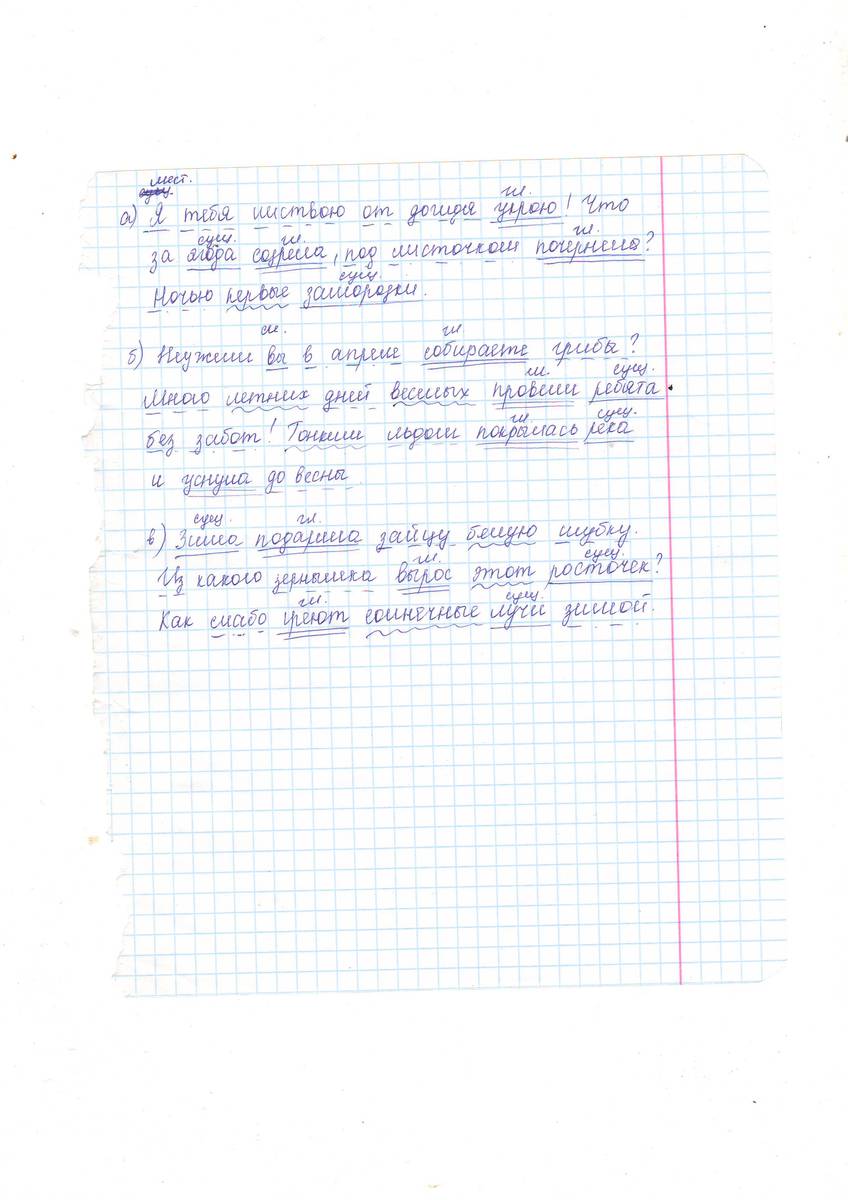 мест.
гл.
а) Я тебя листвою от дождя укрою! Что
сущ. гл. гл.
за ягода созрела, под листочком почернела?
сущ.
Ночью первые заморозки.
гл.
б) Неужели вы в апреле собираете грибы?
гл. сущ.
Много летних дней веселых провели ребята
гл. сущ.
без забот! Тонким льдом покрылась река
и уснула до весны.
сущ. гл.
в) Зима подарила зайцу белую шубку.
гл. сущ.
Из какого зернышка вырос этот росточек?
гл. сущ.
Как слабо греют солнечные лучи зимой.